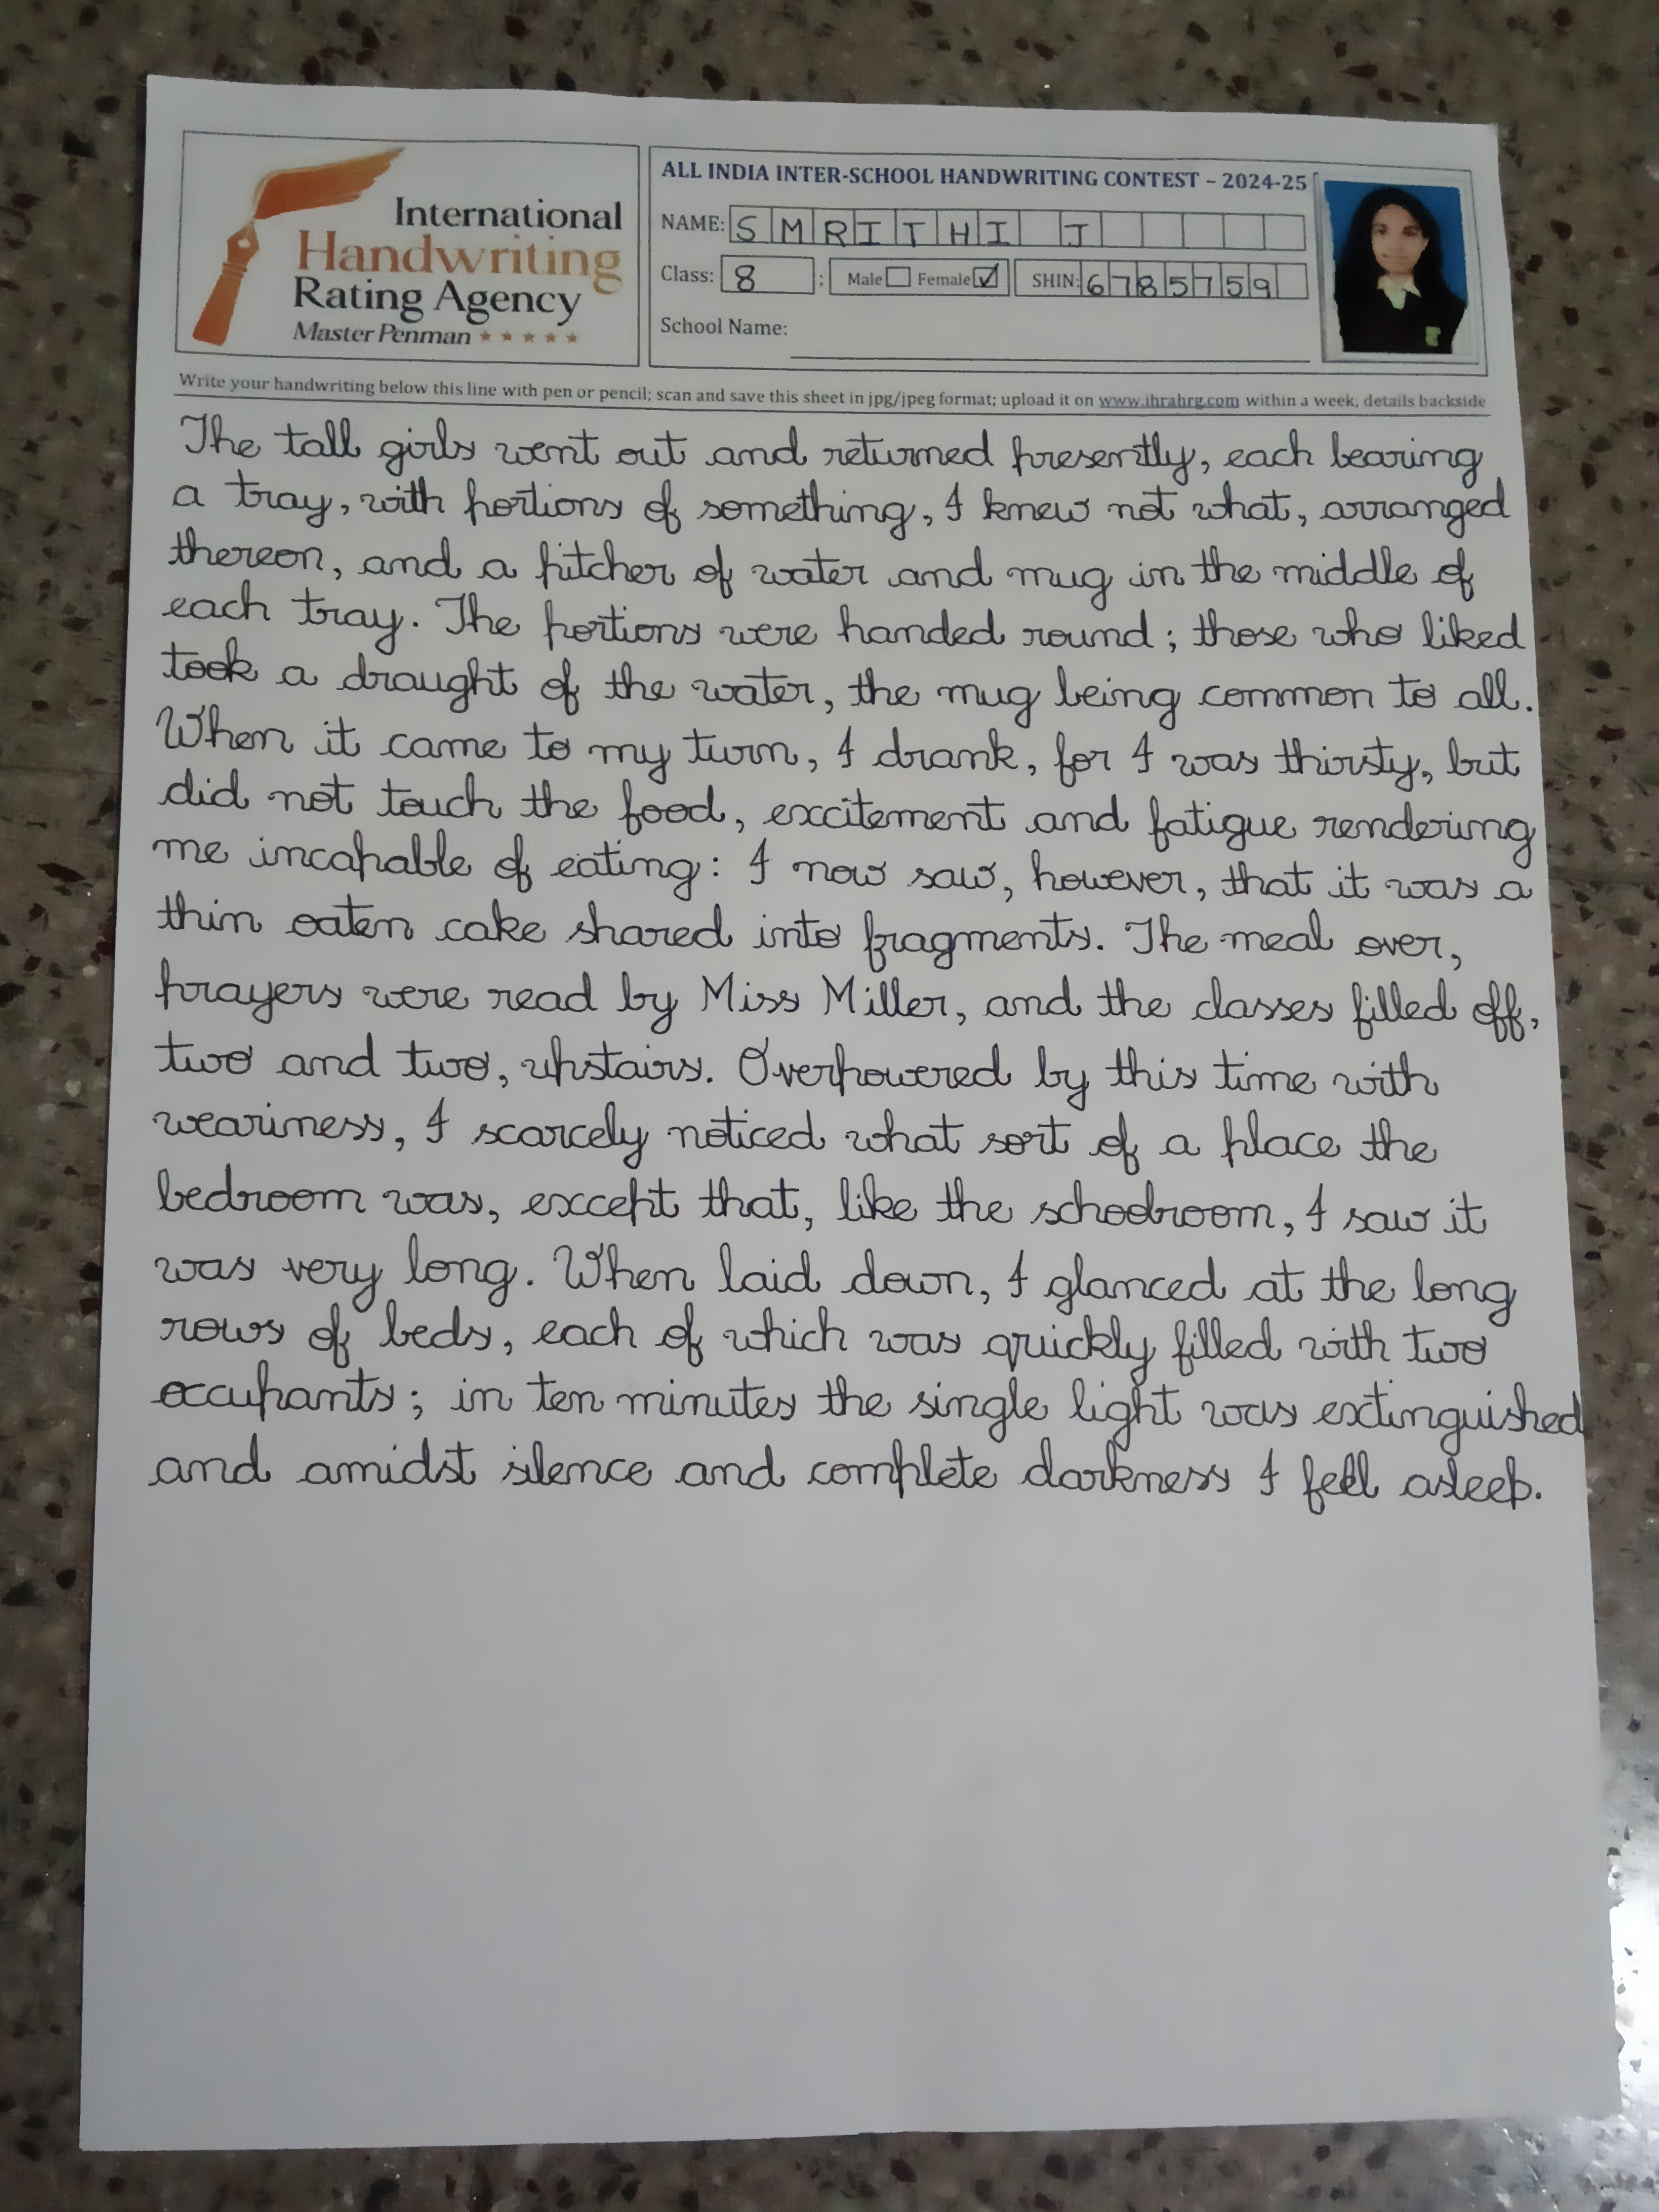 International
Handwriting
Rating Agency
Master Penman ★★★★★
ALL INDIA INTER-SCHOOL HANDWRITING CONTEST – 2024-25
NAME: SMRITHI J
Class: 8 : Male Female ✓ SHIN: 6785759
School Name:
Write your handwriting below this line with pen or pencil; scan and save this sheet in jpg/jpeg format; upload it on www.ihrahrg.com within a week, details backside
The tall girls went out and returned presently, each bearing
a tray, with portions of something, I knew not what, arranged
thereon, and a pitcher of water and mug in the middle of
each tray. The portions were handed round; those who liked
took a draught of the water, the mug being common to all.
When it came to my turn, I drank, for I was thirsty, but
did not touch the food, excitement and fatigue rendering
me incapable of eating: I now saw, however, that it was a
thin oaten cake shared into fragments. The meal over,
prayers were read by Miss Miller, and the classes filled off,
two and two, upstairs. Overpowered by this time with
weariness, I scarcely noticed what sort of a place the
bedroom was, except that, like the schoolroom, I saw it
was very long. When laid down, I glanced at the long
rows of beds, each of which was quickly filled with two
occupants; in ten minutes the single light was extinguished
and amidst silence and complete darkness I fell asleep.